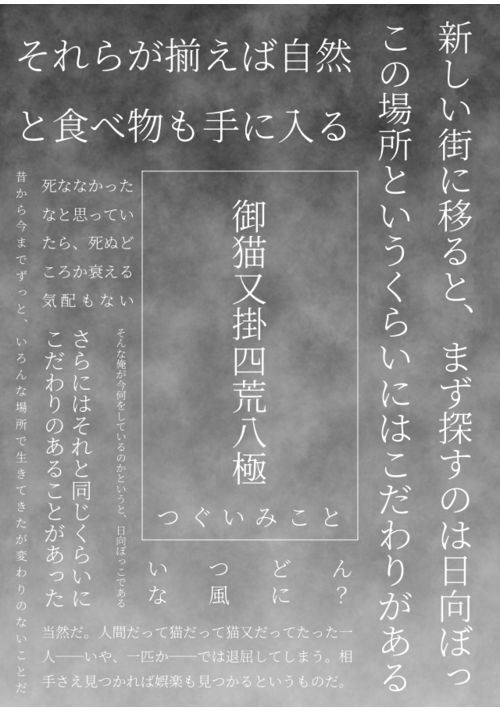 新しい街に移ると、まず探すのは日向ぼっ
この場所というくらいにはこだわりがある
それらが揃えば自然
と食べ物も手に入る
御猫又掛四荒八極
つぐいみこと
死ななかった
なと思ってい
たら、死ぬど
ころか衰える
気配もない
昔から今までずっと、いろんな場所で生きてきたが変わりのないことだ
そんな俺が今何をしているのかというと、日向ぼっこである
さらにはそれと同じくらいに
こだわりのあることがあった
いつどん
な風に？
当然だ。人間だって猫だって猫又だってたった一
人――いや、一匹か――では退屈してしまう。相
手さえ見つかれば娯楽も見つかるというものだ。